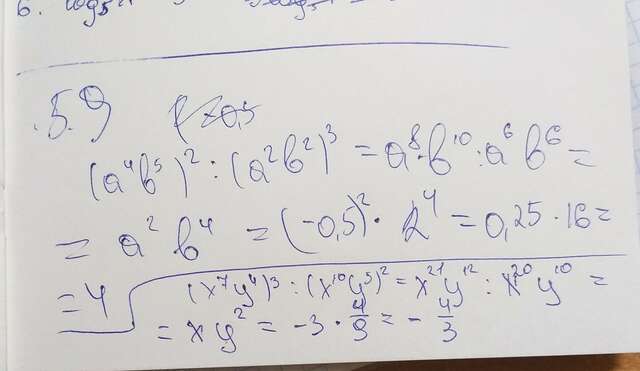 6. log₅
5.9
(a⁴b⁵)² : (a²b²)³ = a⁸·b¹⁰ : a⁶b⁶ =
= a²b⁴ = (-0,5)² · 2⁴ = 0,25 · 16 =
= 4
(x⁷y⁴)³ : (x¹⁰y⁵)² = x²¹y¹² : x²⁰y¹⁰ =
= xy² = -3 · 4/9 = - 4/3